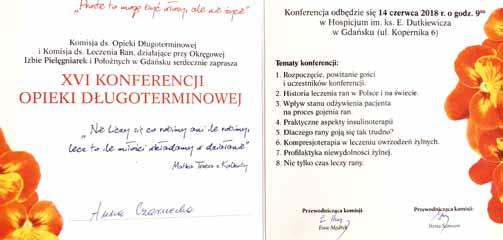 "Proste to mogą być słowa, ale nie życie"
Komisja ds. Opieki Długoterminowej
i Komisja ds. Leczenia Ran, działające przy Okręgowej
Izbie Pielęgniarek i Położnych w Gdańsku serdecznie zaprasza
XVI KONFERENCJI
OPIEKI DŁUGOTERMINOWEJ
"Nie liczy się co robimy ani ile robimy,
lecz to ile miłości wkładamy w działanie"
Matka Teresa z Kalkuty
Anna Czarnecka
Konferencja odbędzie się 14 czerwca 2018 r. o godz. 9⁰⁰
w Hospicjum im. ks. E. Dutkiewicza
w Gdańsku (ul. Kopernika 6)
Tematy konferencji:
1. Rozpoczęcie, powitanie gości
i uczestników konferencji.
2. Historia leczenia ran w Polsce i na świecie.
3. Wpływ stanu odżywienia pacjenta
na proces gojenia ran.
4. Praktyczne aspekty insulinoterapii
5. Dlaczego rany goją się tak trudno?
6. Kompresjoterapia w leczeniu owrzodzeń żylnych.
7. Profilaktyka niewydolności żylnej.
8. Nie tylko czas leczy rany.
Przewodnicząca komisji:
Przewodnicząca komisji:
Ewa